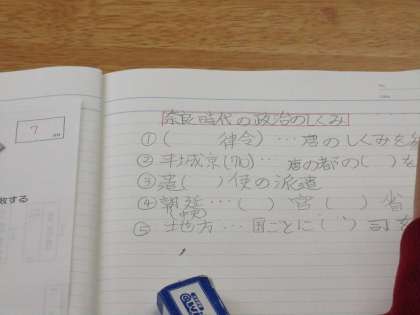 奈良時代の政治のしくみ
①(　　律令)…唐のしくみを
②平城京(710)…唐の都の( )を
③遣( )使の派遣
④朝廷…( )官( )省
(中央)
⑤地方…国ごとに( )司を
7
する